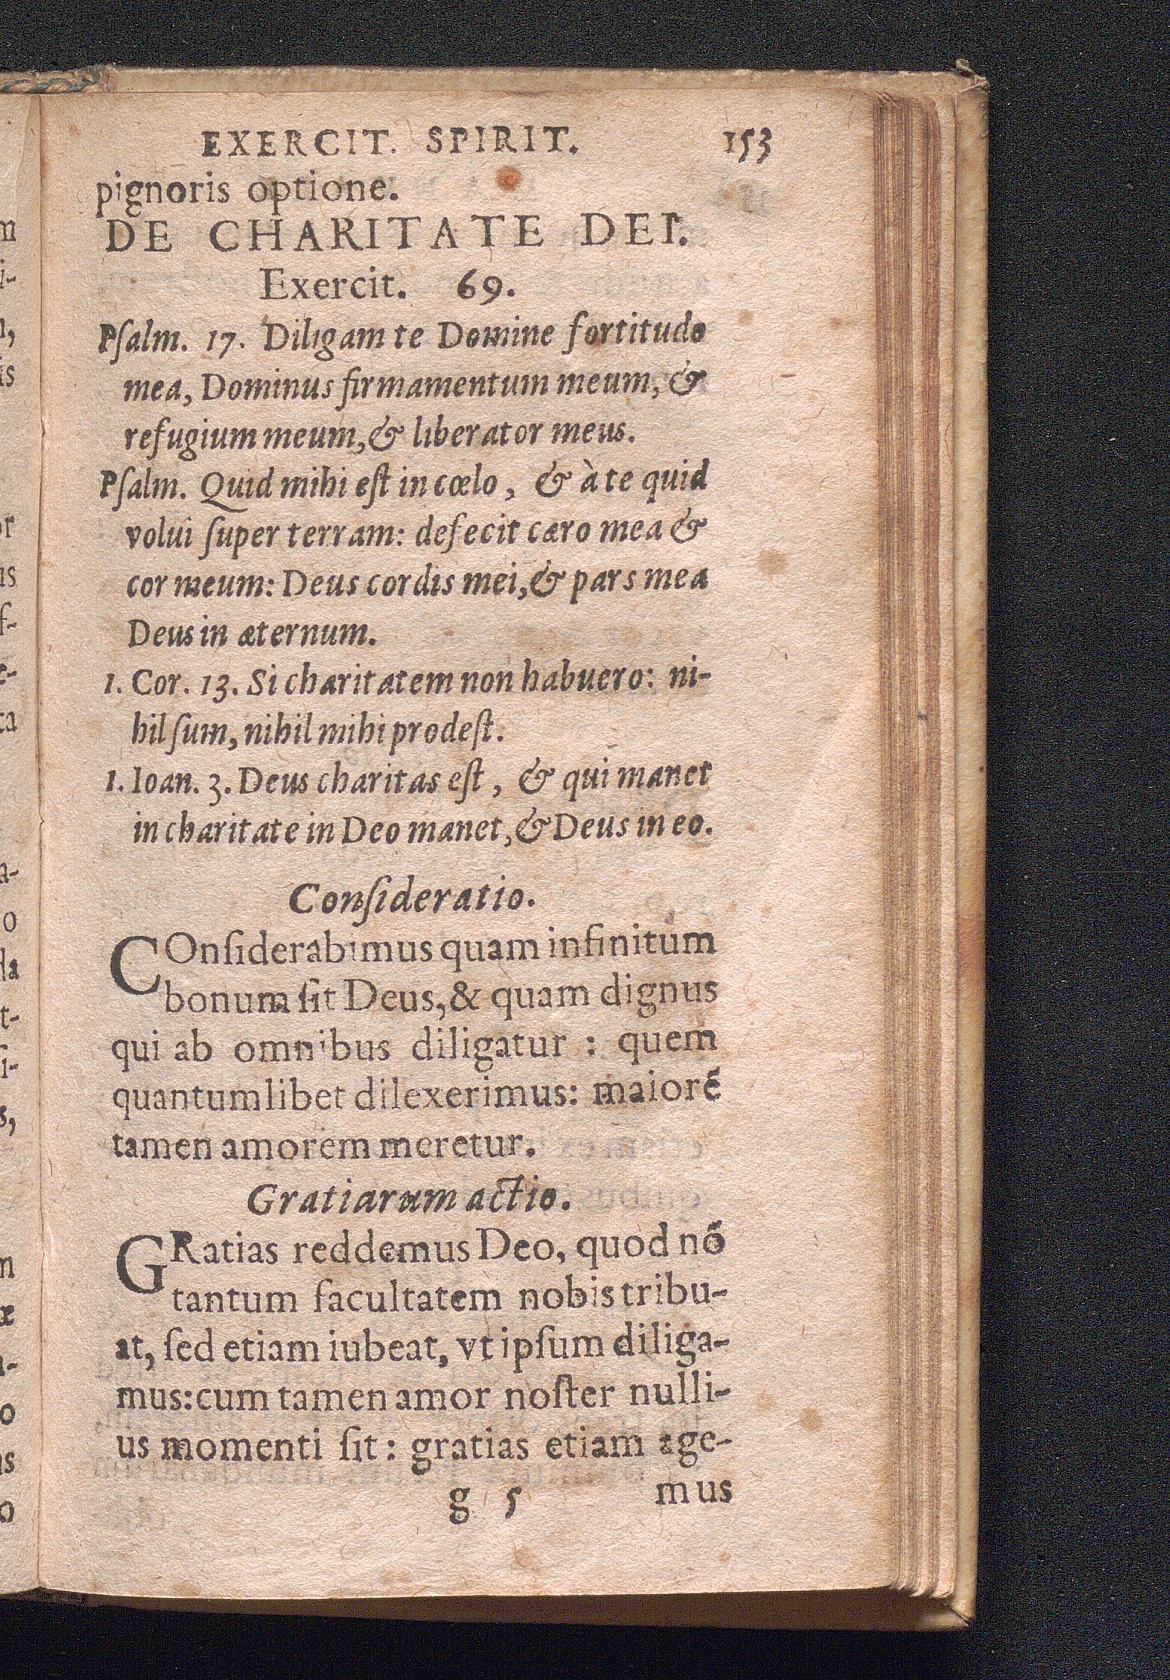 EXERCIT. SPIRIT. 153
pignoris optione.
DE CHARITATE DEI.
Exercit. 69.
Pſalm. 17. Diligam te Domine fortitudo
mea, Dominus firmamentum meum, &
refugium meum, & liberator meus.
Pſalm. Quid mihi eſt in cœlo, & à te quid
volui ſuper terram: defecit caro mea &
cor meum: Deus cordis mei, & pars mea
Deus in æternum.
1. Cor. 13. Si charitatem non habuero: ni-
hil ſum, nihil mihi prodeſt.
1. Ioan. 3. Deus charitas eſt, & qui manet
in charitate in Deo manet, & Deus in eo.
Conſideratio.
COnſiderabimus quam infinitum
bonum ſit Deus, & quam dignus
qui ab omnibus diligatur : quem
quantumlibet dilexerimus: maiorē
tamen amorem meretur.
Gratiarum actio.
GRatias reddemus Deo, quod nō
tantum facultatem nobis tribu-
at, ſed etiam iubeat, vt ipſum diliga-
mus: cum tamen amor noſter nulli-
us momenti ſit : gratias etiam age-
g 5 mus